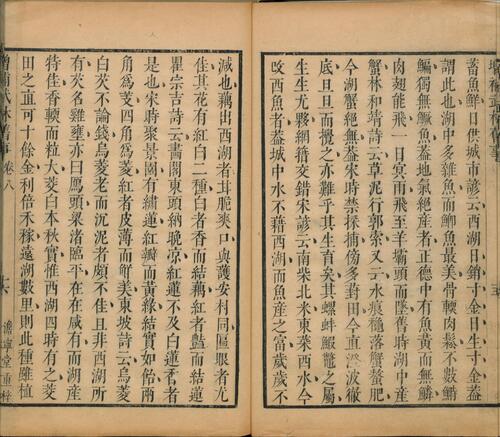 蓄魚鮮日供城市諺云西湖日銷寸金日生寸金蓋
謂此也湖中多雜魚而鯽魚最美骨輭肉鬆不數鱠
鯿獨無鱖魚蓋地氣絶產者正德中有魚黃而無鱗
肉翅能飛一日冥雨飛至羊壩頭而墜舊時湖中產
蟹林和靖詩云草泥行郭索又云水痕穐落蟹螯肥
今湖蟹絶無蓋宋時禁採捕傍多葑田今直澄波徹
底旦旦而攪之亦難乎其生育矣其螺蚌鰕鼈之屬
生生尤夥網簖交錯宋諺云南柴北米東菜西水今
改西魚者蓋城中水不藉西湖而魚產之富歲歲不
減也藕出西湖者甘脆爽口與護安村同匾眼者尤
佳其花有紅白二種白者香而結藕紅者豔而結蓮
瞿宗吉詩云畵閣東頭納晚凉紅蓮不及白蓮香者
是也宋時聚景園有繡蓮紅瓣而黃緣結實如飴兩
角爲芰四角爲菱紅者皮薄而鮮美東坡詩云烏菱
白芡不論錢烏菱老而沉泥者頗不佳且非西湖所
有芡名雞壅亦曰鴈頭臬渚臨平在在咸有而湖產
特佳香輭而粒大茭白本秋實惟西湖四時有之茭
田之直可十餘金利倍禾稼遠湖數里則此種雖植
增補武林舊事 卷八